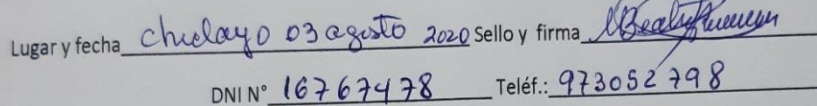 Lugar y fecha chiclayo 03 agosto 2020 Sello y firma
DNI N° 16767478 Teléf.: 973052798